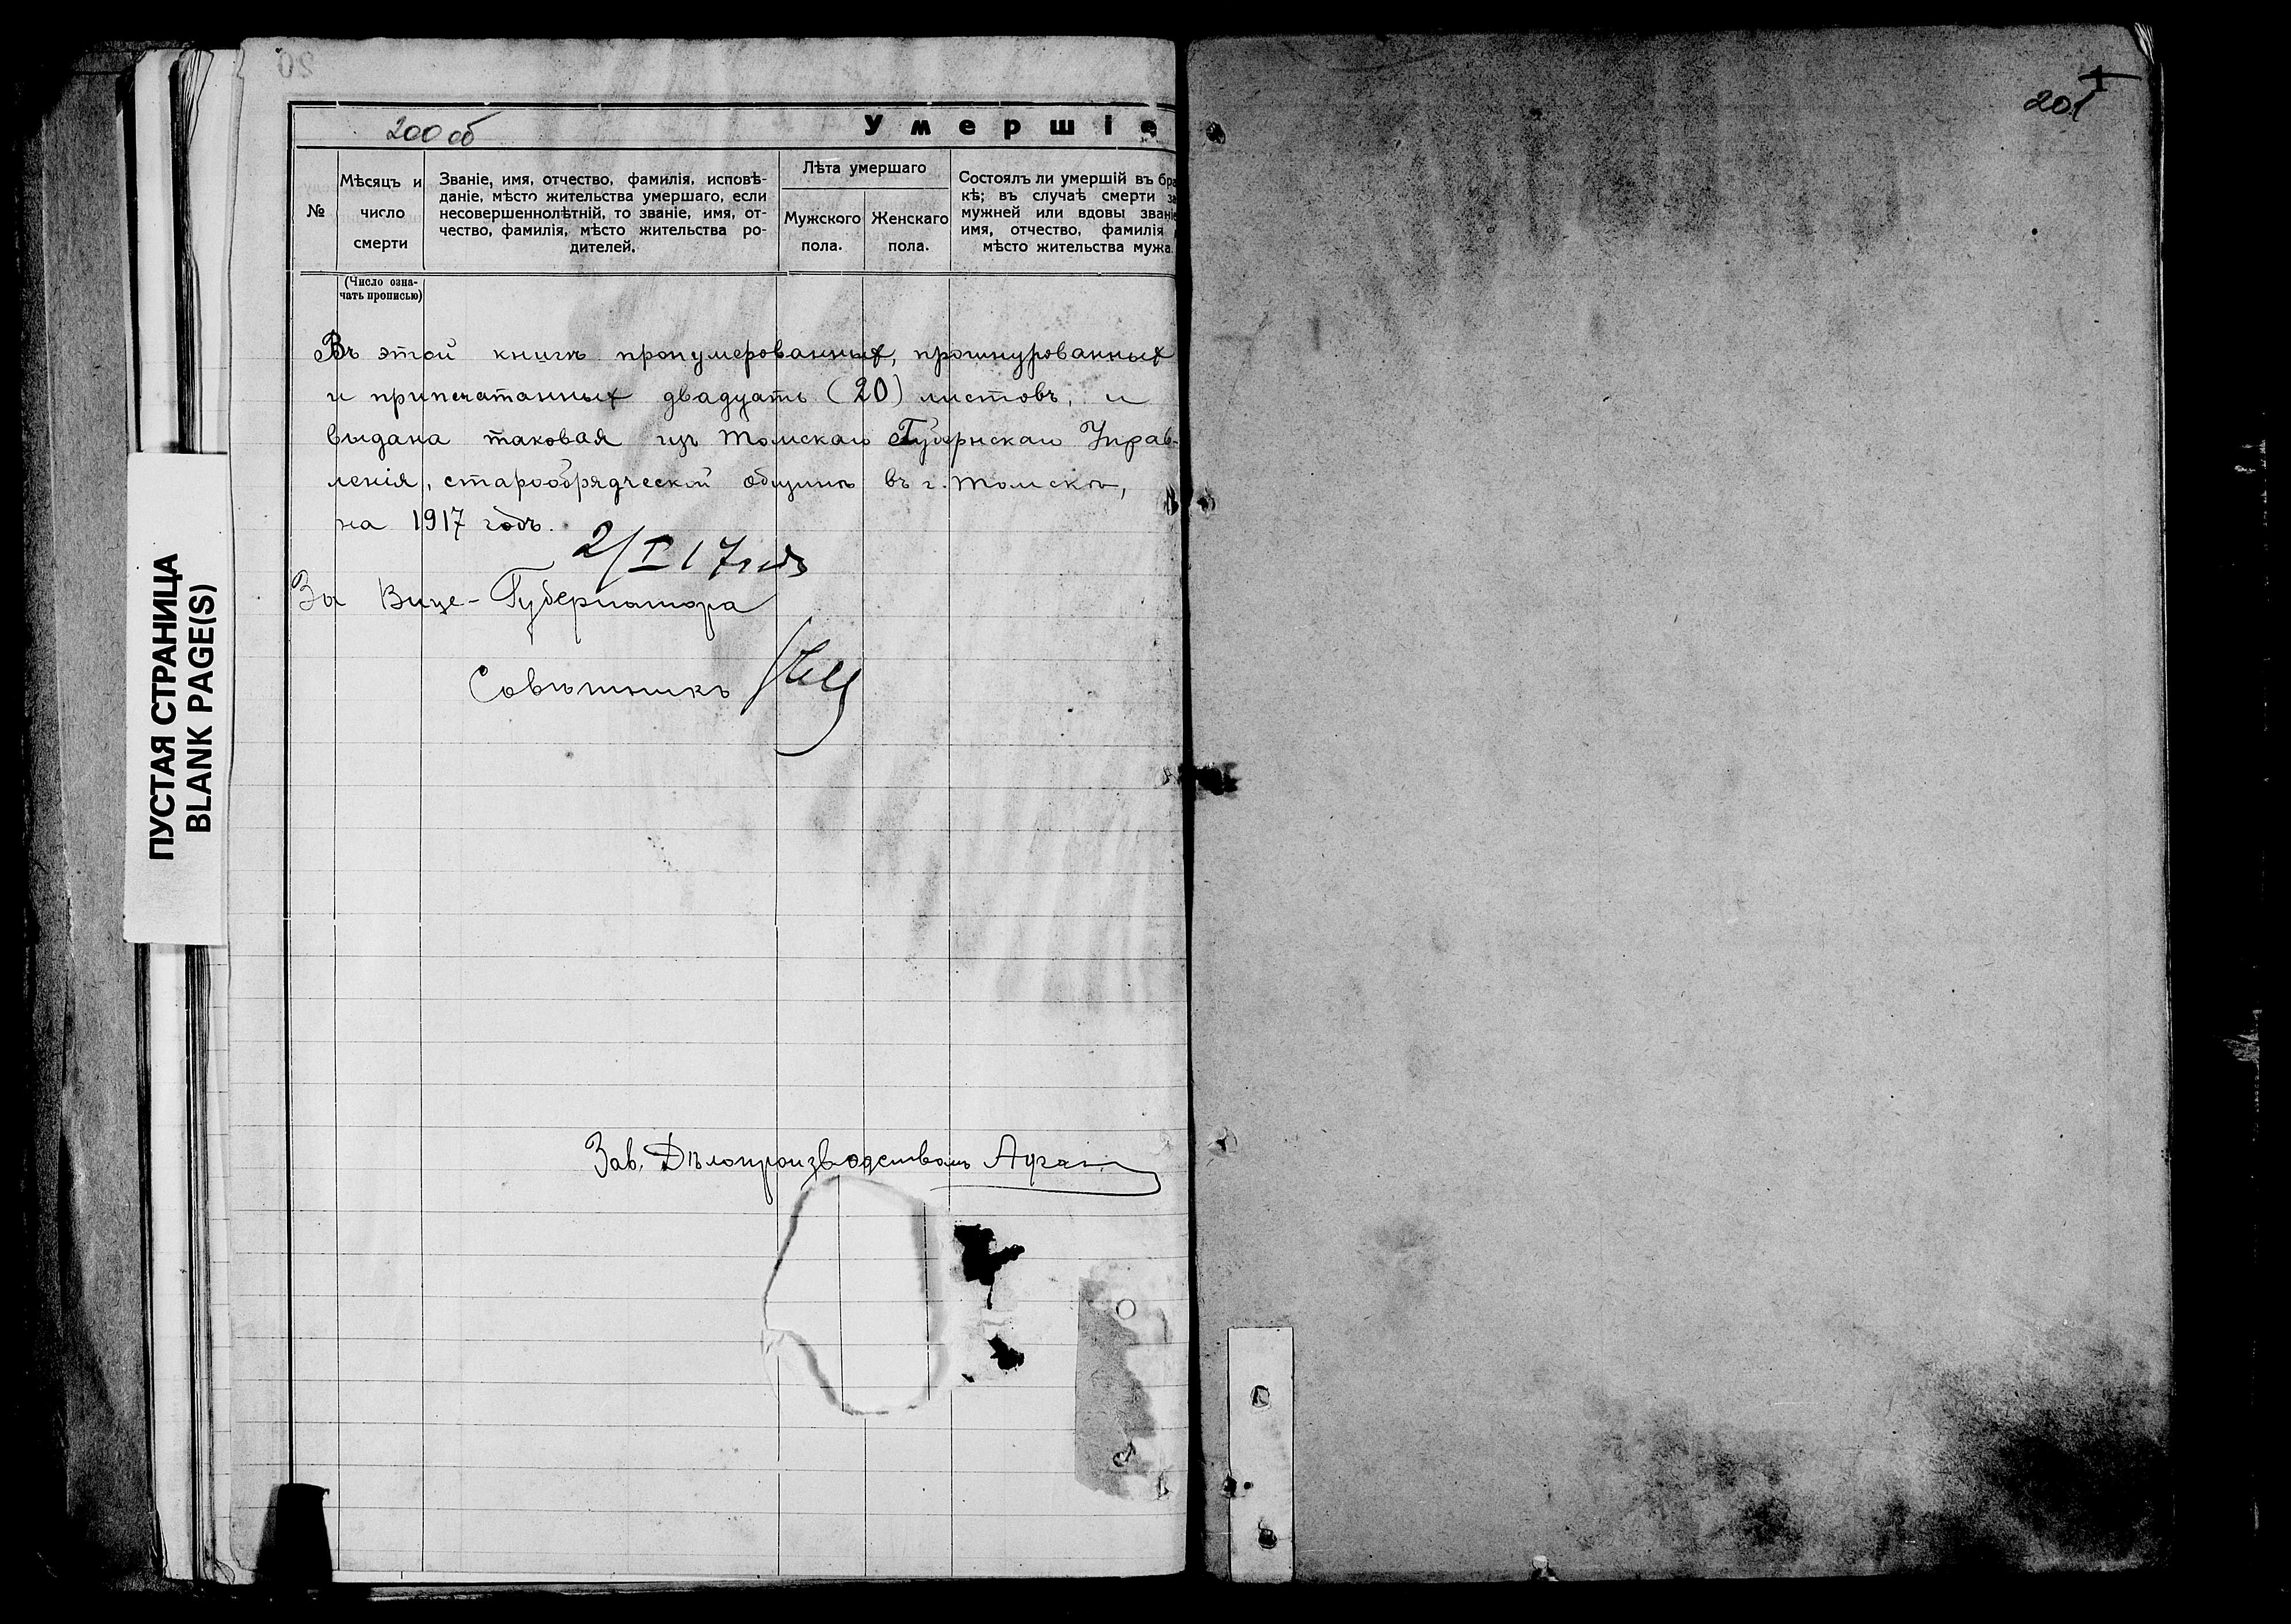 200 об
Умершіе
№
Мѣсяцъ и
число
смерти
Званіе, имя, отчество, фамилія, исповѣ-
даніе, мѣсто жительства умершаго, если
несовершеннолѣтній, то званіе, имя, от-
чество, фамилія, мѣсто жительства ро-
дителей.
Лѣта умершаго
Мужского
пола.
Женскаго
пола.
Состоялъ ли умершій въ бра
кѣ; въ случаѣ смерти за
мужней или вдовы званіе
имя, отчество, фамилія
мѣсто жительства мужа.
(Число озна-
чать прописью)
Въ этой книгѣ пронумерованныхъ, прошнурованныхъ
и припечатанныхъ двадцать (20) листовъ, и
выдана таковая изъ Томскаго Губернскаго Управ-
ленія, старообрядческой общинѣ въ г. Томскѣ,
на 1917 годъ.
2/I 17 года
За Вице-Губернатора
Совѣтникъ
Зав. Дѣлопроизводствомъ
ПУСТАЯ СТРАНИЦА
BLANK PAGE(S)
201